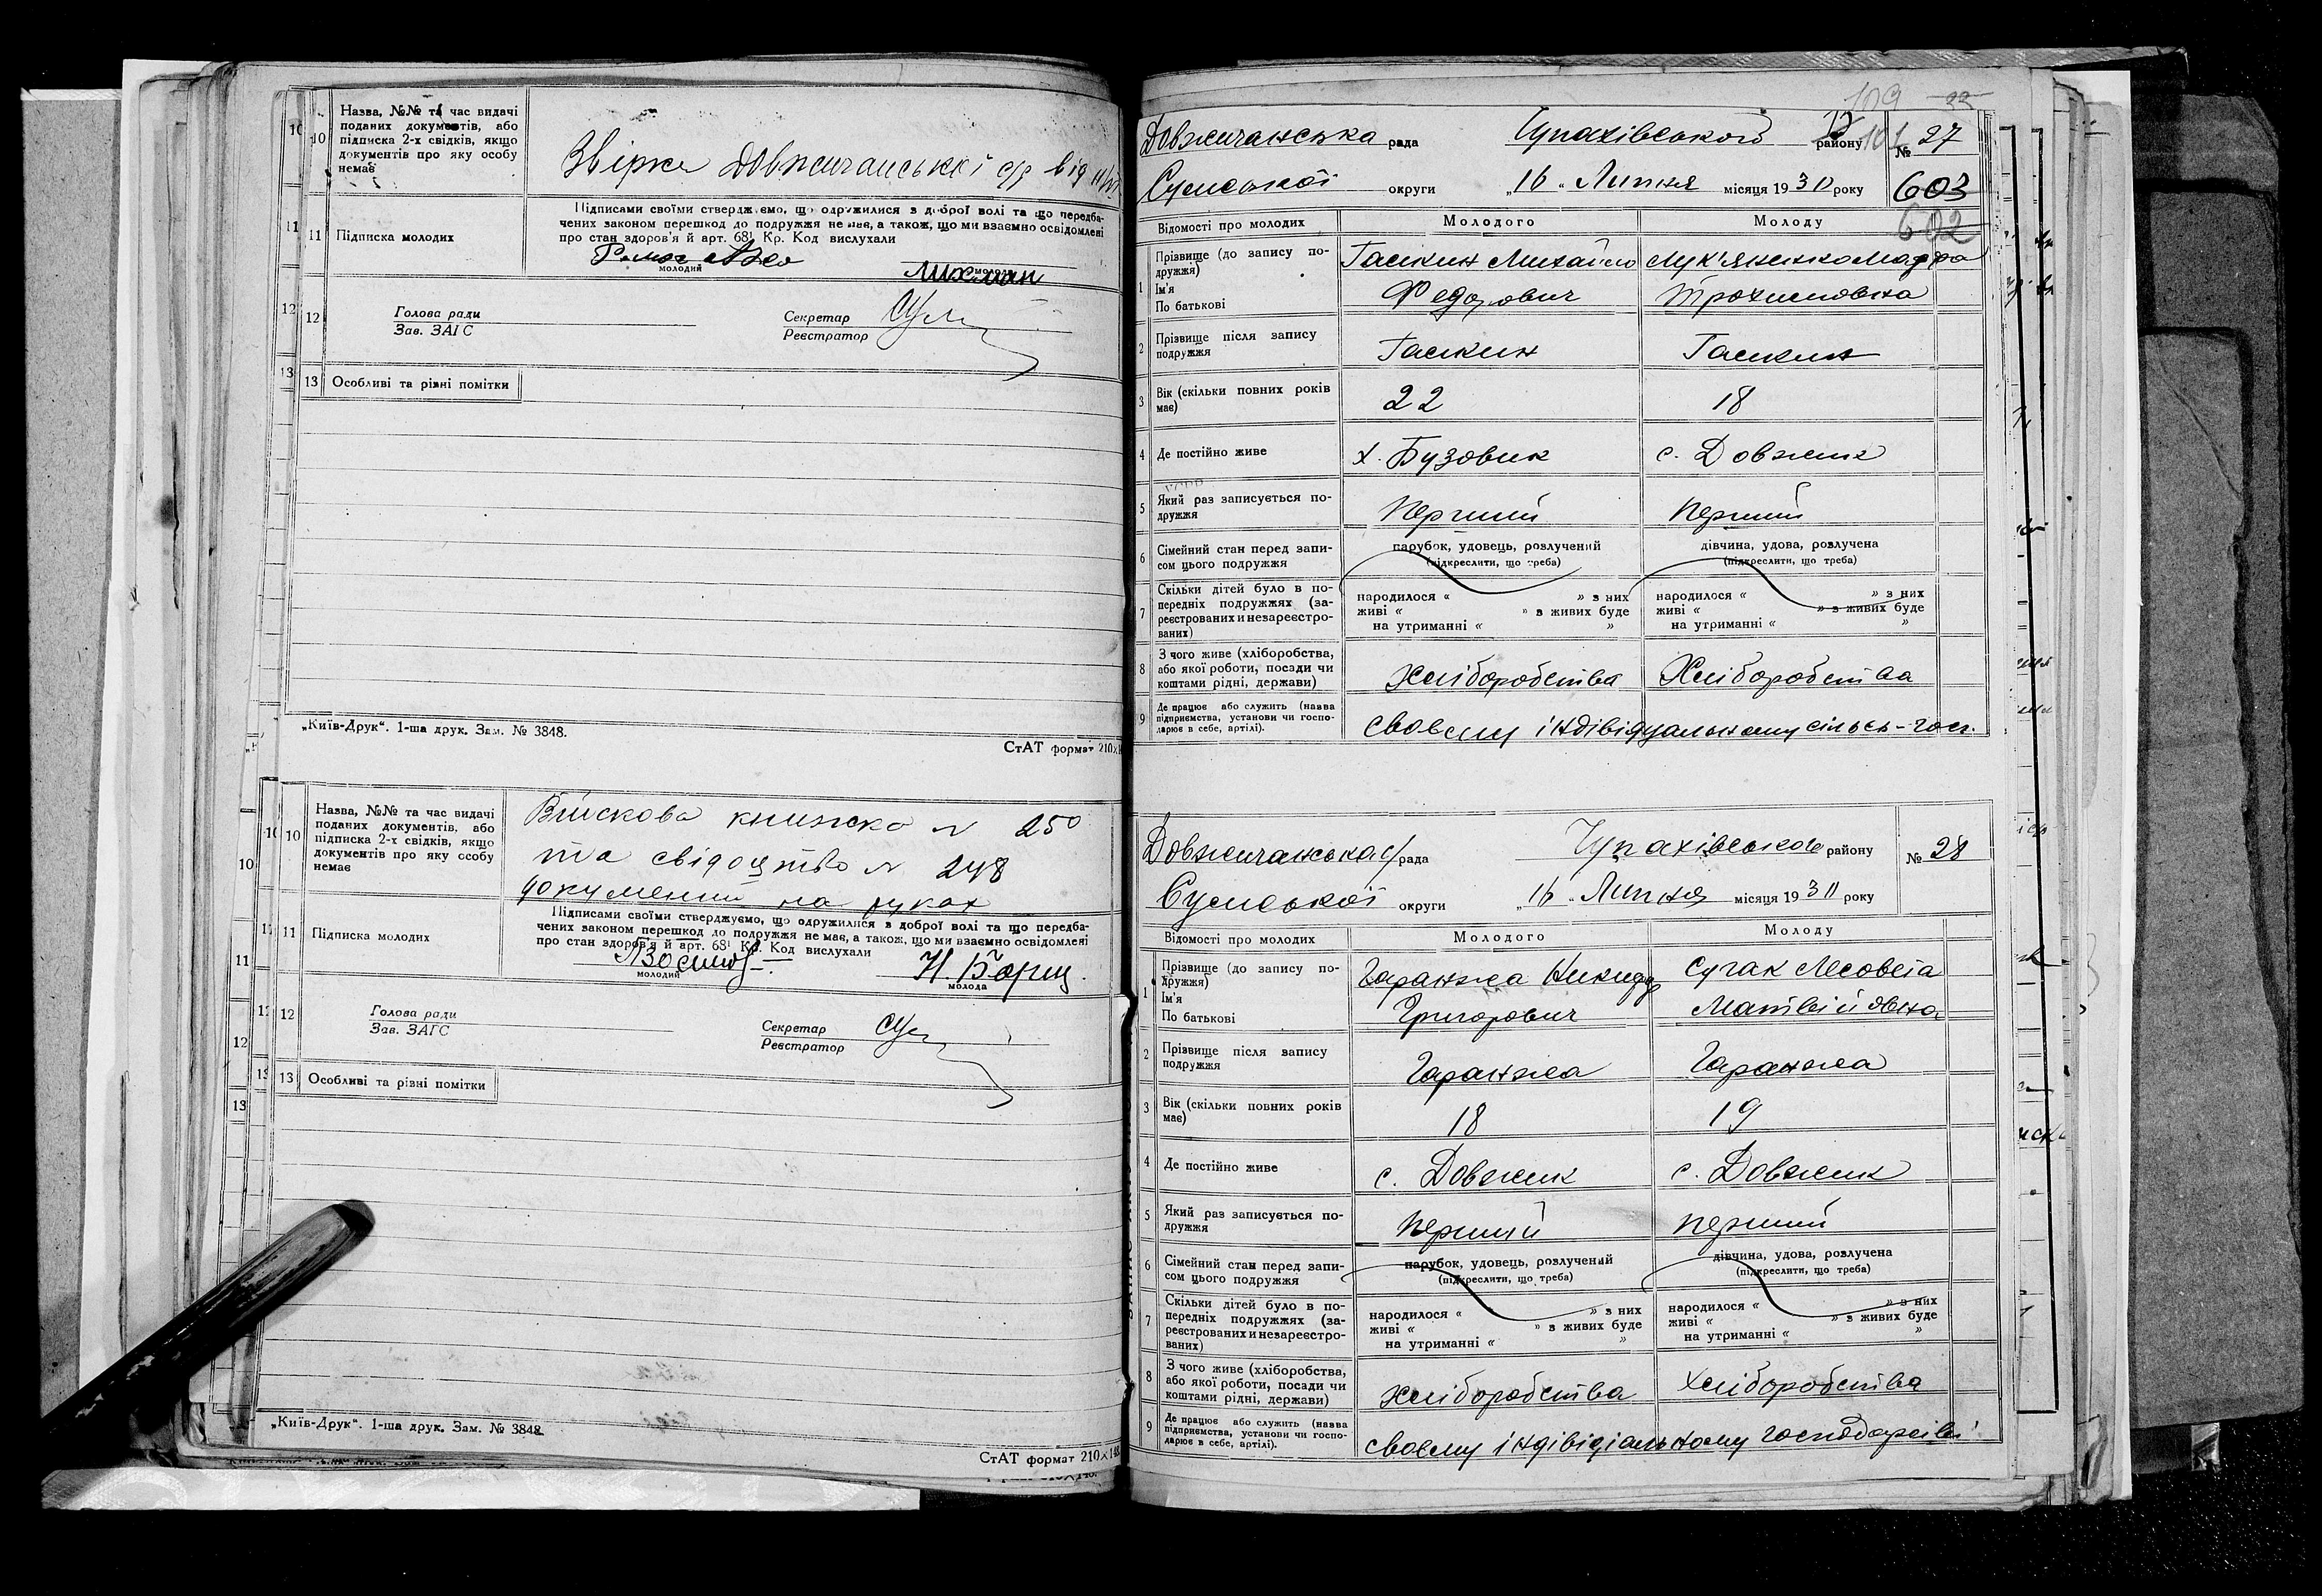 10
Назва, №№ та час видачі
поданих документів, або
підписка 2-х свідків, якщо
документів про яку особу
немає
Звірка Довжичанської с/р від
11
11
Підписка молодих
Підписами своїми стверджуємо, що одружилися з доброї волі та що передба-
чених законом перешкод до подружжя не має, а також, що ми взаємно освідомлені
про стан здоров'я й арт. 68¹ Кр. Код вислухали
молодий
молода
12
12
Голова ради
Зав. ЗАГС
Секретар
Реєстратор
13
13
Особливі та рівні помітки
„Київ-Друк“. 1-ша друк. Зам. № 3848.
СтАТ формат 210×1
10
10
10
Назва, №№ та час видачі
поданих документів, або
підписка 2-х свідків, якщо
документів про яку особу
немає
Війскова книжка № 250
та свідоцтво № 248
документи на руках
11
11
11
Підписка молодих
Підписами своїми стверджуємо, що одружилися з доброї волі та що передба-
чених законом перешкод до подружжя не має, а також, що ми взаємно освідомлені
про стан здоров'я й арт. 68¹ Кр. Код вислухали
молодий
Н. Борщ.
молода
12
12
12
Голова ради
Зав. ЗАГС
Секретар
Реєстратор
13
13
13
Особливі та рівні помітки
„Київ-Друк“. 1-ша друк. Зам. № 3848.
СтАТ формат 210×148
109 22
Довжичанська рада Чупахівського району № 27
Сумської округи „16“ Липня місяця 1930 року 603
602
Відомості про молодих Молодого Молоду
1
Прізвище (до запису по-
дружжя)
Ім'я
По батькові
Гашкин Михайло Лук'яненко Марфа
Федорович Трохимовна
2
Прізвище після запису
подружжя
Гашкин Гашкин
3
Вік (скільки повних років
має)
22 18
4 Де постійно живе х. Бузовик с. Довжик
5
Який раз записується по-
дружжя
перший перший
6
Сімейний стан перед запи-
сом цього подружжя
парубок, удовець, розлучений
(підкреслити, що треба)
дівчина, удова, розлучена
(підкреслити, що треба)
7
Скільки дітей було в по-
передніх подружжях (за-
реєстрованих и незареєстро-
ваних)
народилося « » з них
живі « » з живих буде
на утриманні « »
народилося « » з них
живі « » з живих буде
на утриманні « »
8
З чого живе (хліборобства,
або якої роботи, посади чи
коштами рідні, держави)
Хліборобства Хліборобства
9
Де працює або служить (назва
підприємства, установи чи госпо-
дарює в себе, артілі).
своєму індівідуальному сільсь-госп.
Довжичанська с/рада Чупахівського району № 28
Сумської округи „16“ Липня місяця 1930 року
Відомості про молодих Молодого Молоду
1
Прізвище (до запису по-
дружжя)
Ім'я
По батькові
Гаранжа Никифор Сучак
Григорович Матвійовна
2
Прізвище після запису
подружжя
Гаранжа Гаранжа
3
Вік (скільки повних років
має)
18 19
4 Де постійно живе с. Довжик с. Довжик
5
Який раз записується по-
дружжя
перший перший
6
Сімейний стан перед запи-
сом цього подружжя
парубок, удовець, розлучений
(підкреслити, що треба)
дівчина, удова, розлучена
(підкреслити, що треба)
7
Скільки дітей було в по-
передніх подружжях (за-
реєстрованих и незареєстро-
ваних)
народилося « » з них
живі « » з живих буде
на утриманні « »
народилося « » з них
живі « » з живих буде
на утриманні « »
8
З чого живе (хліборобства,
або якої роботи, посади чи
коштами рідні, держави)
хліборобства хліборобства
9
Де працює або служить (назва
підприємства, установи чи госпо-
дарює в себе, артілі).
своєму індівідіальному господарсіві